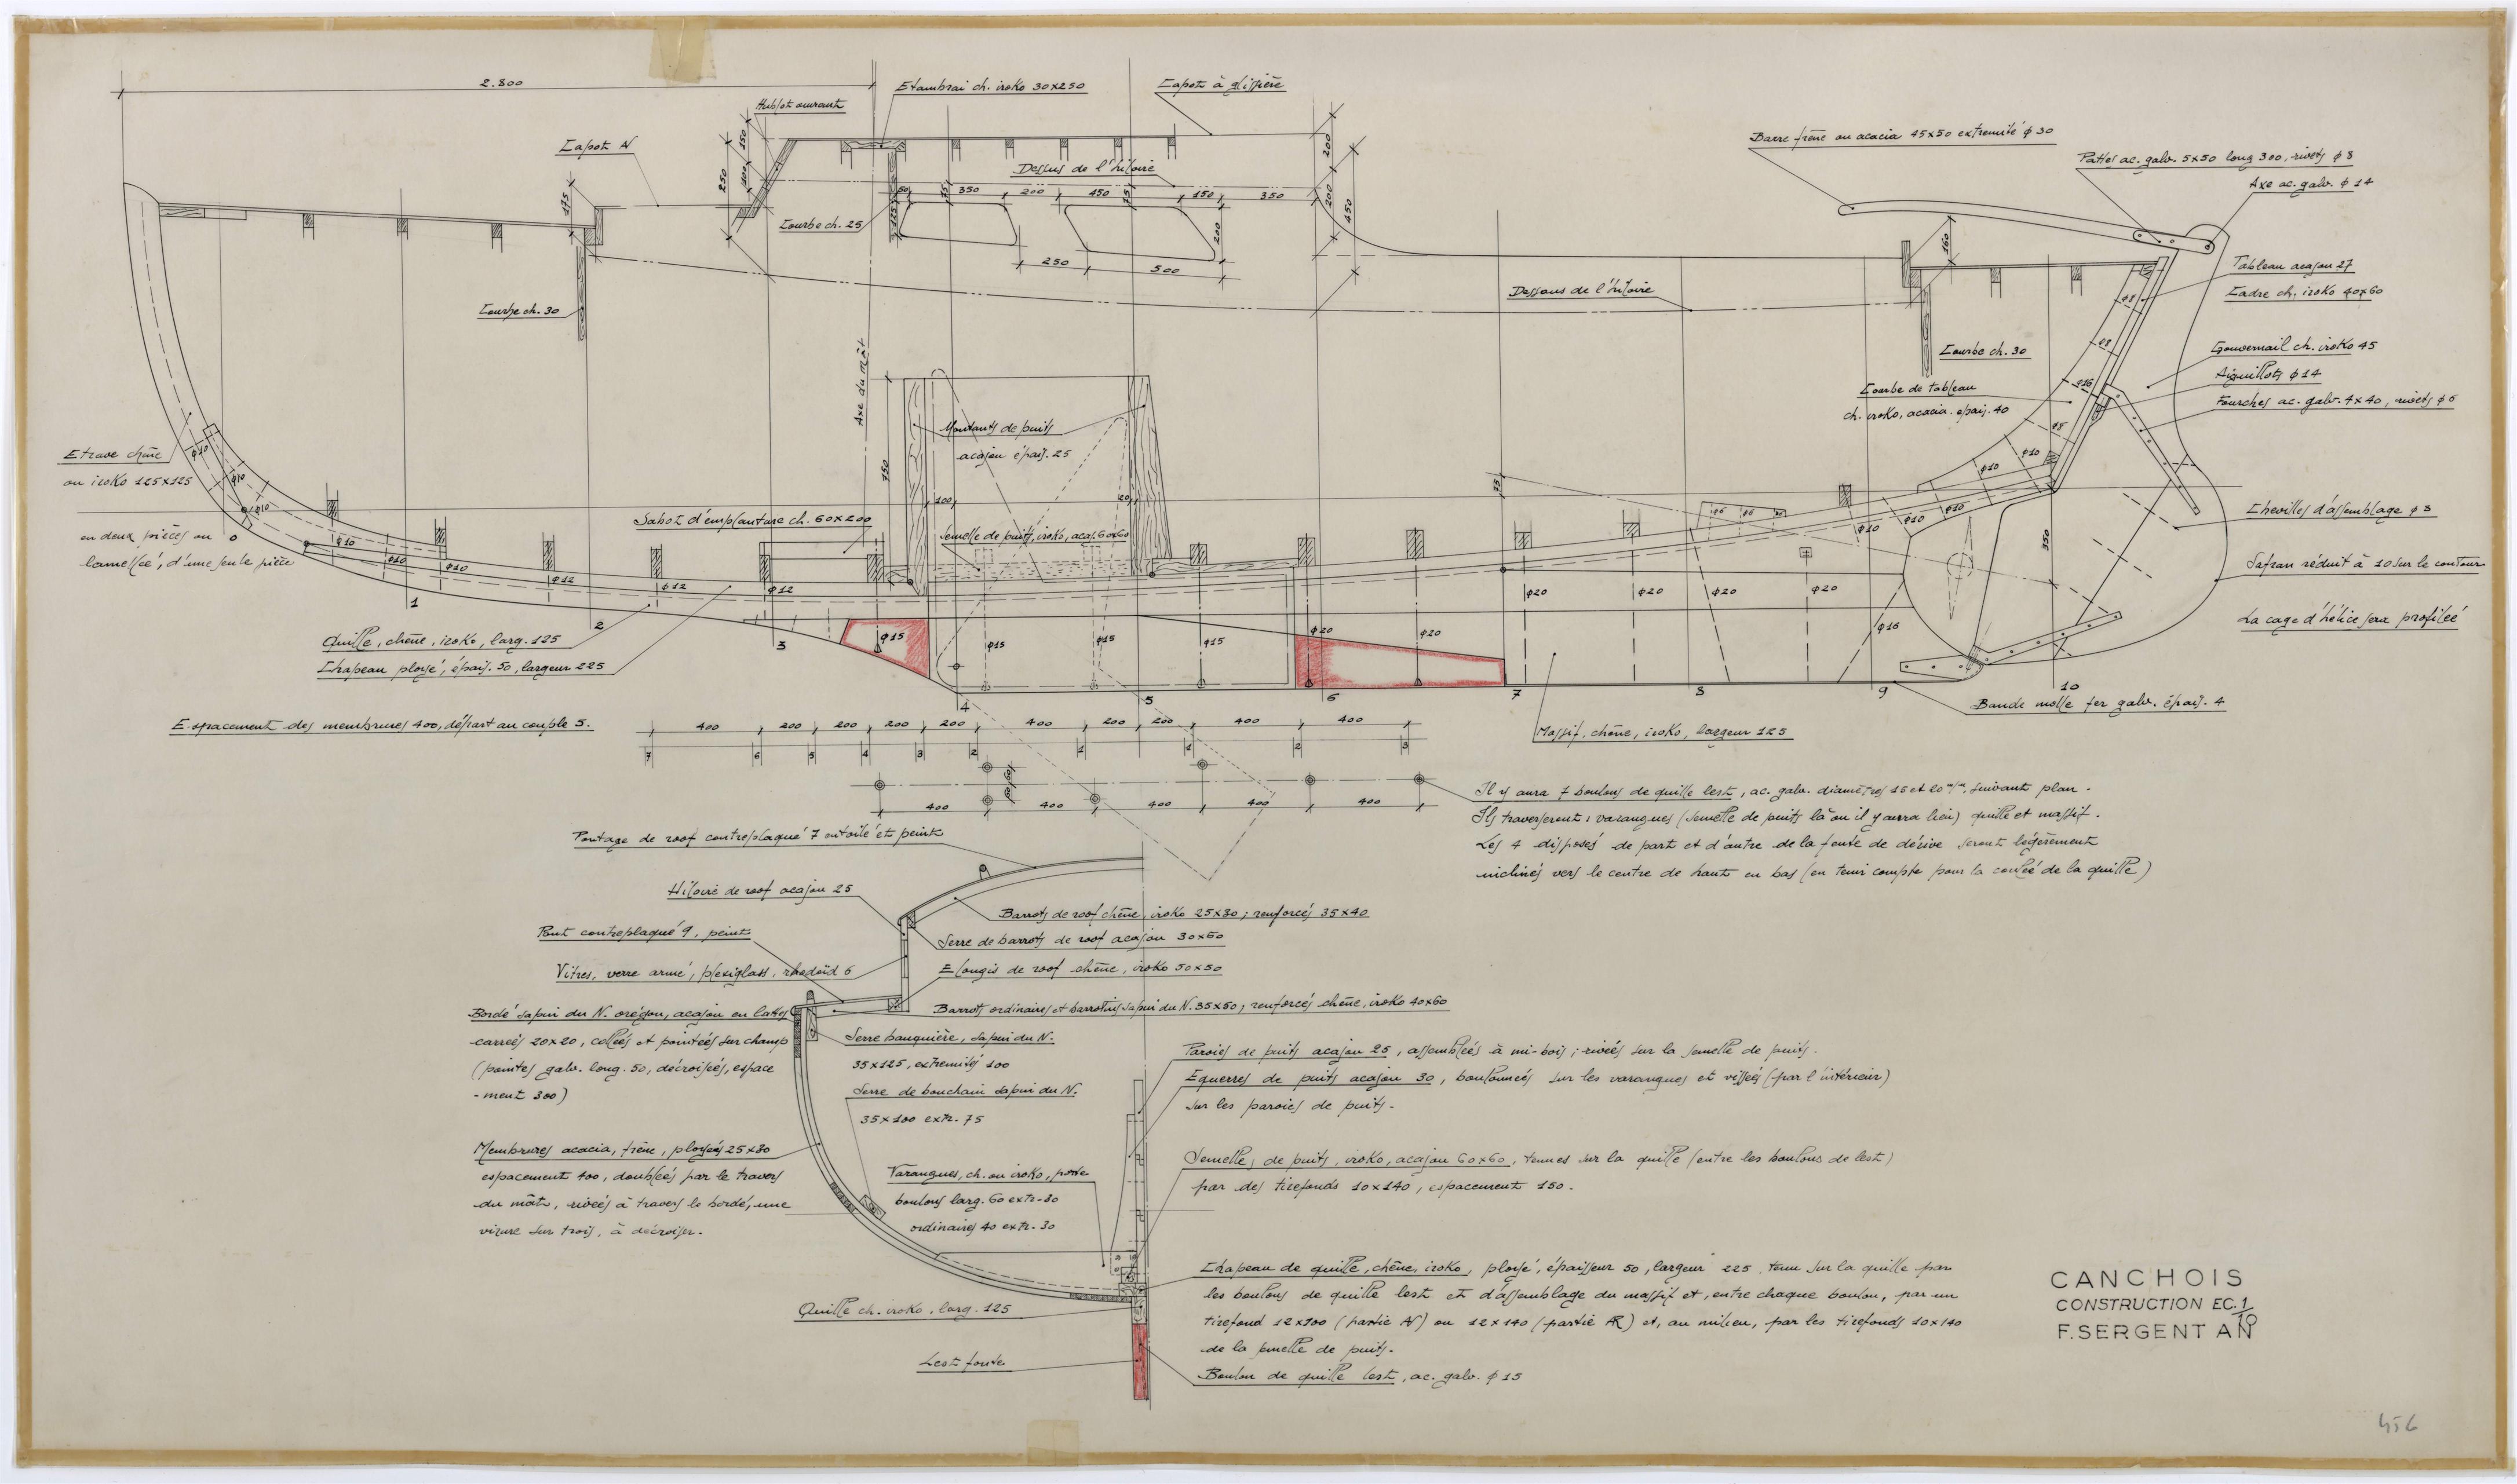 2.800
Etambrai ch. iroko 30x250
Capot à glissière
Hublot ouvrant
Capot AV
Barre frêne ou acacia 45x50 extremité φ 30
Pattes ac. galv. 5x50 long 300, rivets φ 8
Axe ac. galv. φ 14
Dessus de l'hiloire
350
200
450
150
350
250
500
200
175
250
150
200
200
450
160
Courbe ch. 25
Courbe ch. 30
Dessous de l'hiloire
Tableau acajou 27
Cadre ch. iroko 40x60
Courbe ch. 30
Gouvernail ch. iroko 45
Aiguillots φ 14
Fourches ac. galv. 4x40, rivets φ 6
Courbe de tableau
ch. iroko, acacia. epais. 40
Axe du mât
Montants de puits
acajou épais. 25
Etrave chêne
ou iroko 125x125
en deux pièces ou
lamellée, d'une seule pièce
Sabot d'emplanture ch. 60x200
Semelle de puits, iroko, acaj. 60x60
Chevilles d'assemblage φ 8
Safran réduit à 10 sur le contour
La cage d'hélice sera profilée
0
1
2
3
4
5
6
7
8
9
10
φ10
φ10
φ10
φ10
φ10
φ10
φ12
φ12
φ12
φ15
φ15
φ15
φ15
φ20
φ20
φ20
φ20
φ20
φ20
φ16
φ10
φ10
φ10
φ10
φ10
Quille, chêne, iroko, larg. 125
Chapeau ployé, épais. 50, largeur 225
Bande molle fer galv. épais. 4
Massif, chêne, iroko, largeur 125
Espacement des membrures 400, départ au couple 5.
400
200
200
200
200
400
200
200
400
400
7
6
5
4
3
2
1
1
2
3
400
400
400
400
400
Il y aura 7 boulons de quille lest, ac. galv. diamètres 15 et 20 m/m, suivant plan.
Ils traverseront : varangues (semelle de puits là où il y aura lieu) quille et massif.
Les 4 disposés de part et d'autre de la fente de dérive seront légèrement
inclinés vers le centre de haut en bas (en tenir compte pour la coulée de la quille)
Pontage de roof contreplaqué 7 entoilé et peint
Hiloire de roof acajou 25
Barrots de roof chêne, iroko 25x30 ; renforcés 35x40
Pont contreplaqué 9, peint
Serre de barrots de roof acajou 30x60
Vitres, verre armé, plexiglass, rhodoïd 6
Elongis de roof chêne, iroko 50x50
Bordé sapin du N. orégon, acajou en lattes
carrées 20x20, collées et pointées sur champ
(pointes galv. long. 50, décroisées, espace
-ment 300)
Barrots ordinaires et barrotins sapin du N. 35x50 ; renforcés chêne, iroko 40x60
Serre bauquière, sapin du N.
35x125, extremités 100
Serre de bouchain sapin du N.
35x100 extr. 75
Parois de puits acajou 25, assemblées à mi-bois ; rivées sur la semelle de puits.
Equerres de puits acajou 30, boulonnées sur les varangues et vissées (par l'intérieur)
sur les parois de puits.
Membrures acacia, frêne, ployées 25x30
espacement 400, doublées par le travers
du mât, rivées à travers le bordé, une
virure sur trois, à décroiser.
Varangues, ch. ou iroko, porte
boulons larg. 60 extr. 30
ordinaires 40 extr. 30
Semelles de puits, iroko, acajou 60x60, tenues sur la quille (entre les boulons de lest)
par des tirefonds 10x140, espacement 150.
Chapeau de quille, chêne, iroko, ployé, épaisseur 50, largeur 225, tenu sur la quille par
les boulons de quille lest et d'assemblage du massif et, entre chaque boulon, par un
tirefond 12x100 (partie AV) ou 12x140 (partie AR) et, au milieu, par les tirefonds 10x140
de la semelle de puits.
Boulon de quille lest, ac. galv. φ 15
Quille ch. iroko, larg. 125
Lest fonte
CANCHOIS
CONSTRUCTION EC. 1/10
F. SERGENT AN
456